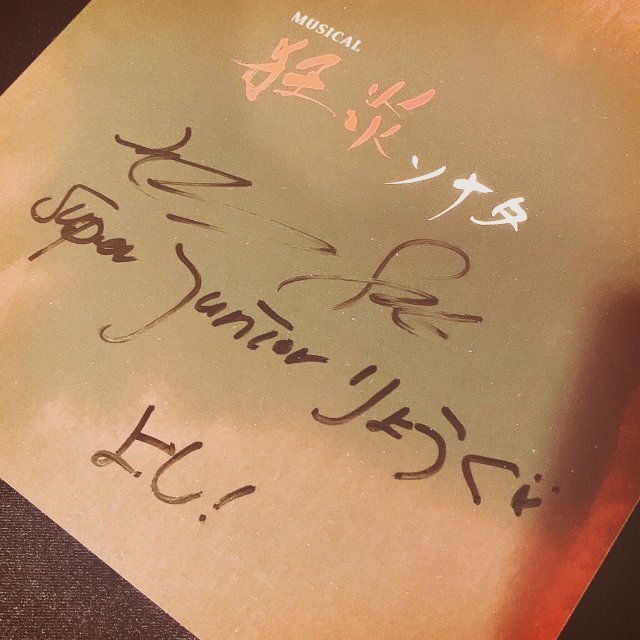 MUSICAL
狂炎ソナタ
Super Junior りょうく
よし!